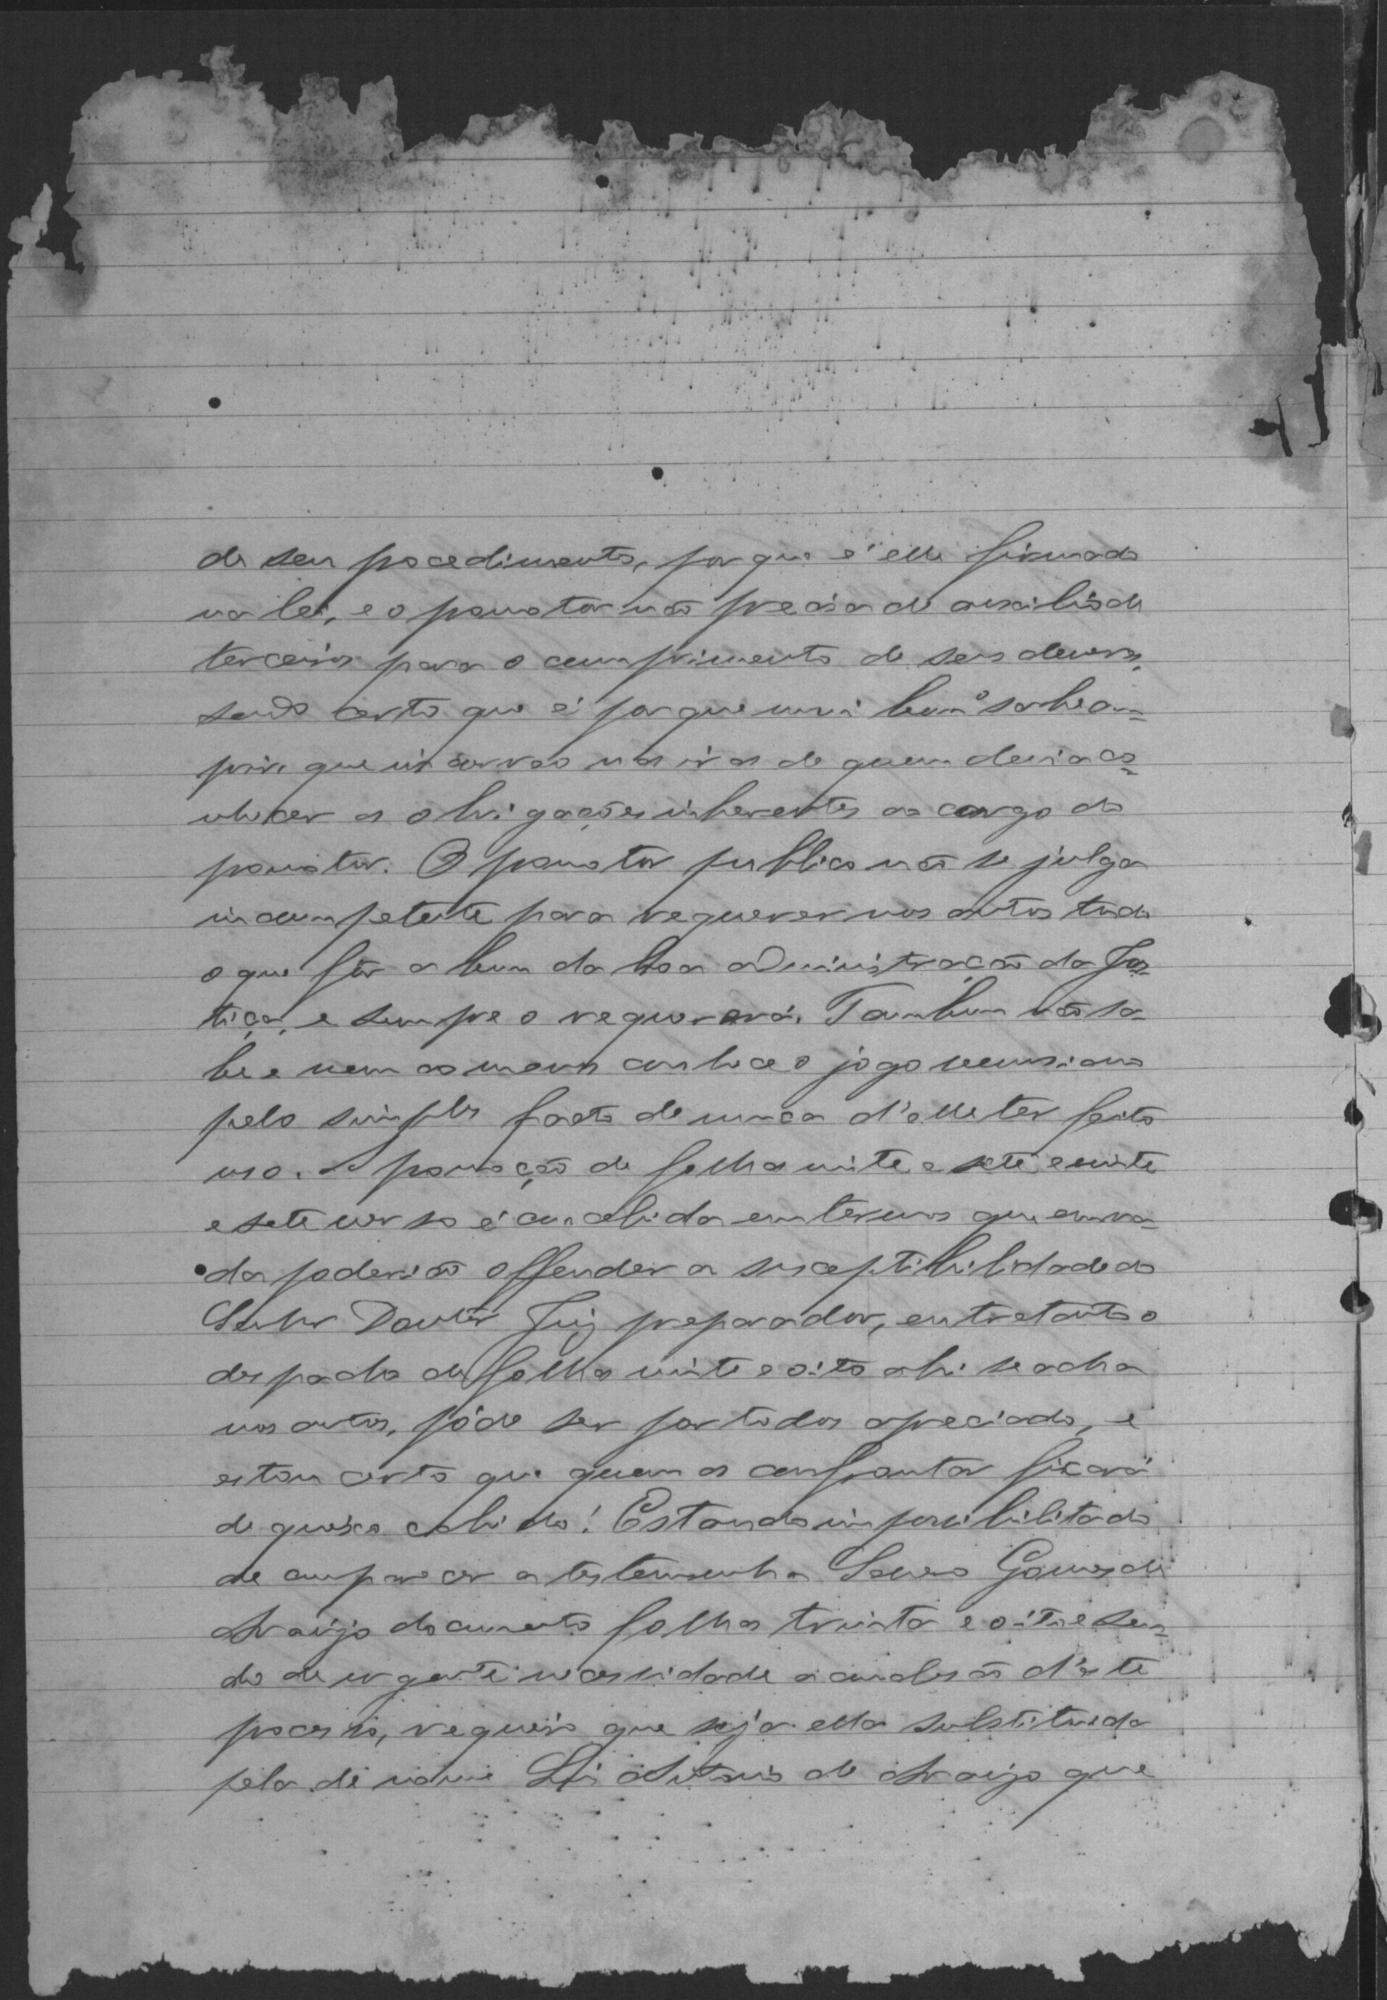 de seu procedimento, porque é elle firmado
na lei, e o promotor não precisa de auxilio de
terceiros para o cumprimento de seus deveres,
sendo certo que é porque mui bem o sabe cum-
prir que incorreo nas iras de quem devia co-
nhecer as obrigações inherentes ao cargo do
promotor. O promotor publico não se julga
incompetente para requerer nos autos tudo
o que fôr a bem da boa administração da Jus-
tiça, e sempre o requererá. Tambem não sa-
be e nem ao menos conhece o jogo
pelo simples facto de nunca d'elle ter feito
uso. A promoção de folhas vinte e sete e vinte
e sete verso é concebida em termos que em na-
da poderião offender a susceptibilidade do
Senhor Doutor Juiz preparador, entretanto o
despacho de folhas vinte e oito ahi se acha
nos autos, póde ser por todos apreciado, e
estou certo que quem os confrontar ficará
de queixo cahido! Estando impossibilitado
de comparecer a testemunha Gomes de
Araujo documento folhas trinta e oito e sen-
do de urgente necessidade a conclusão d'este
processo, requeiro que seja ella substituida
pela de nome de Araujo que